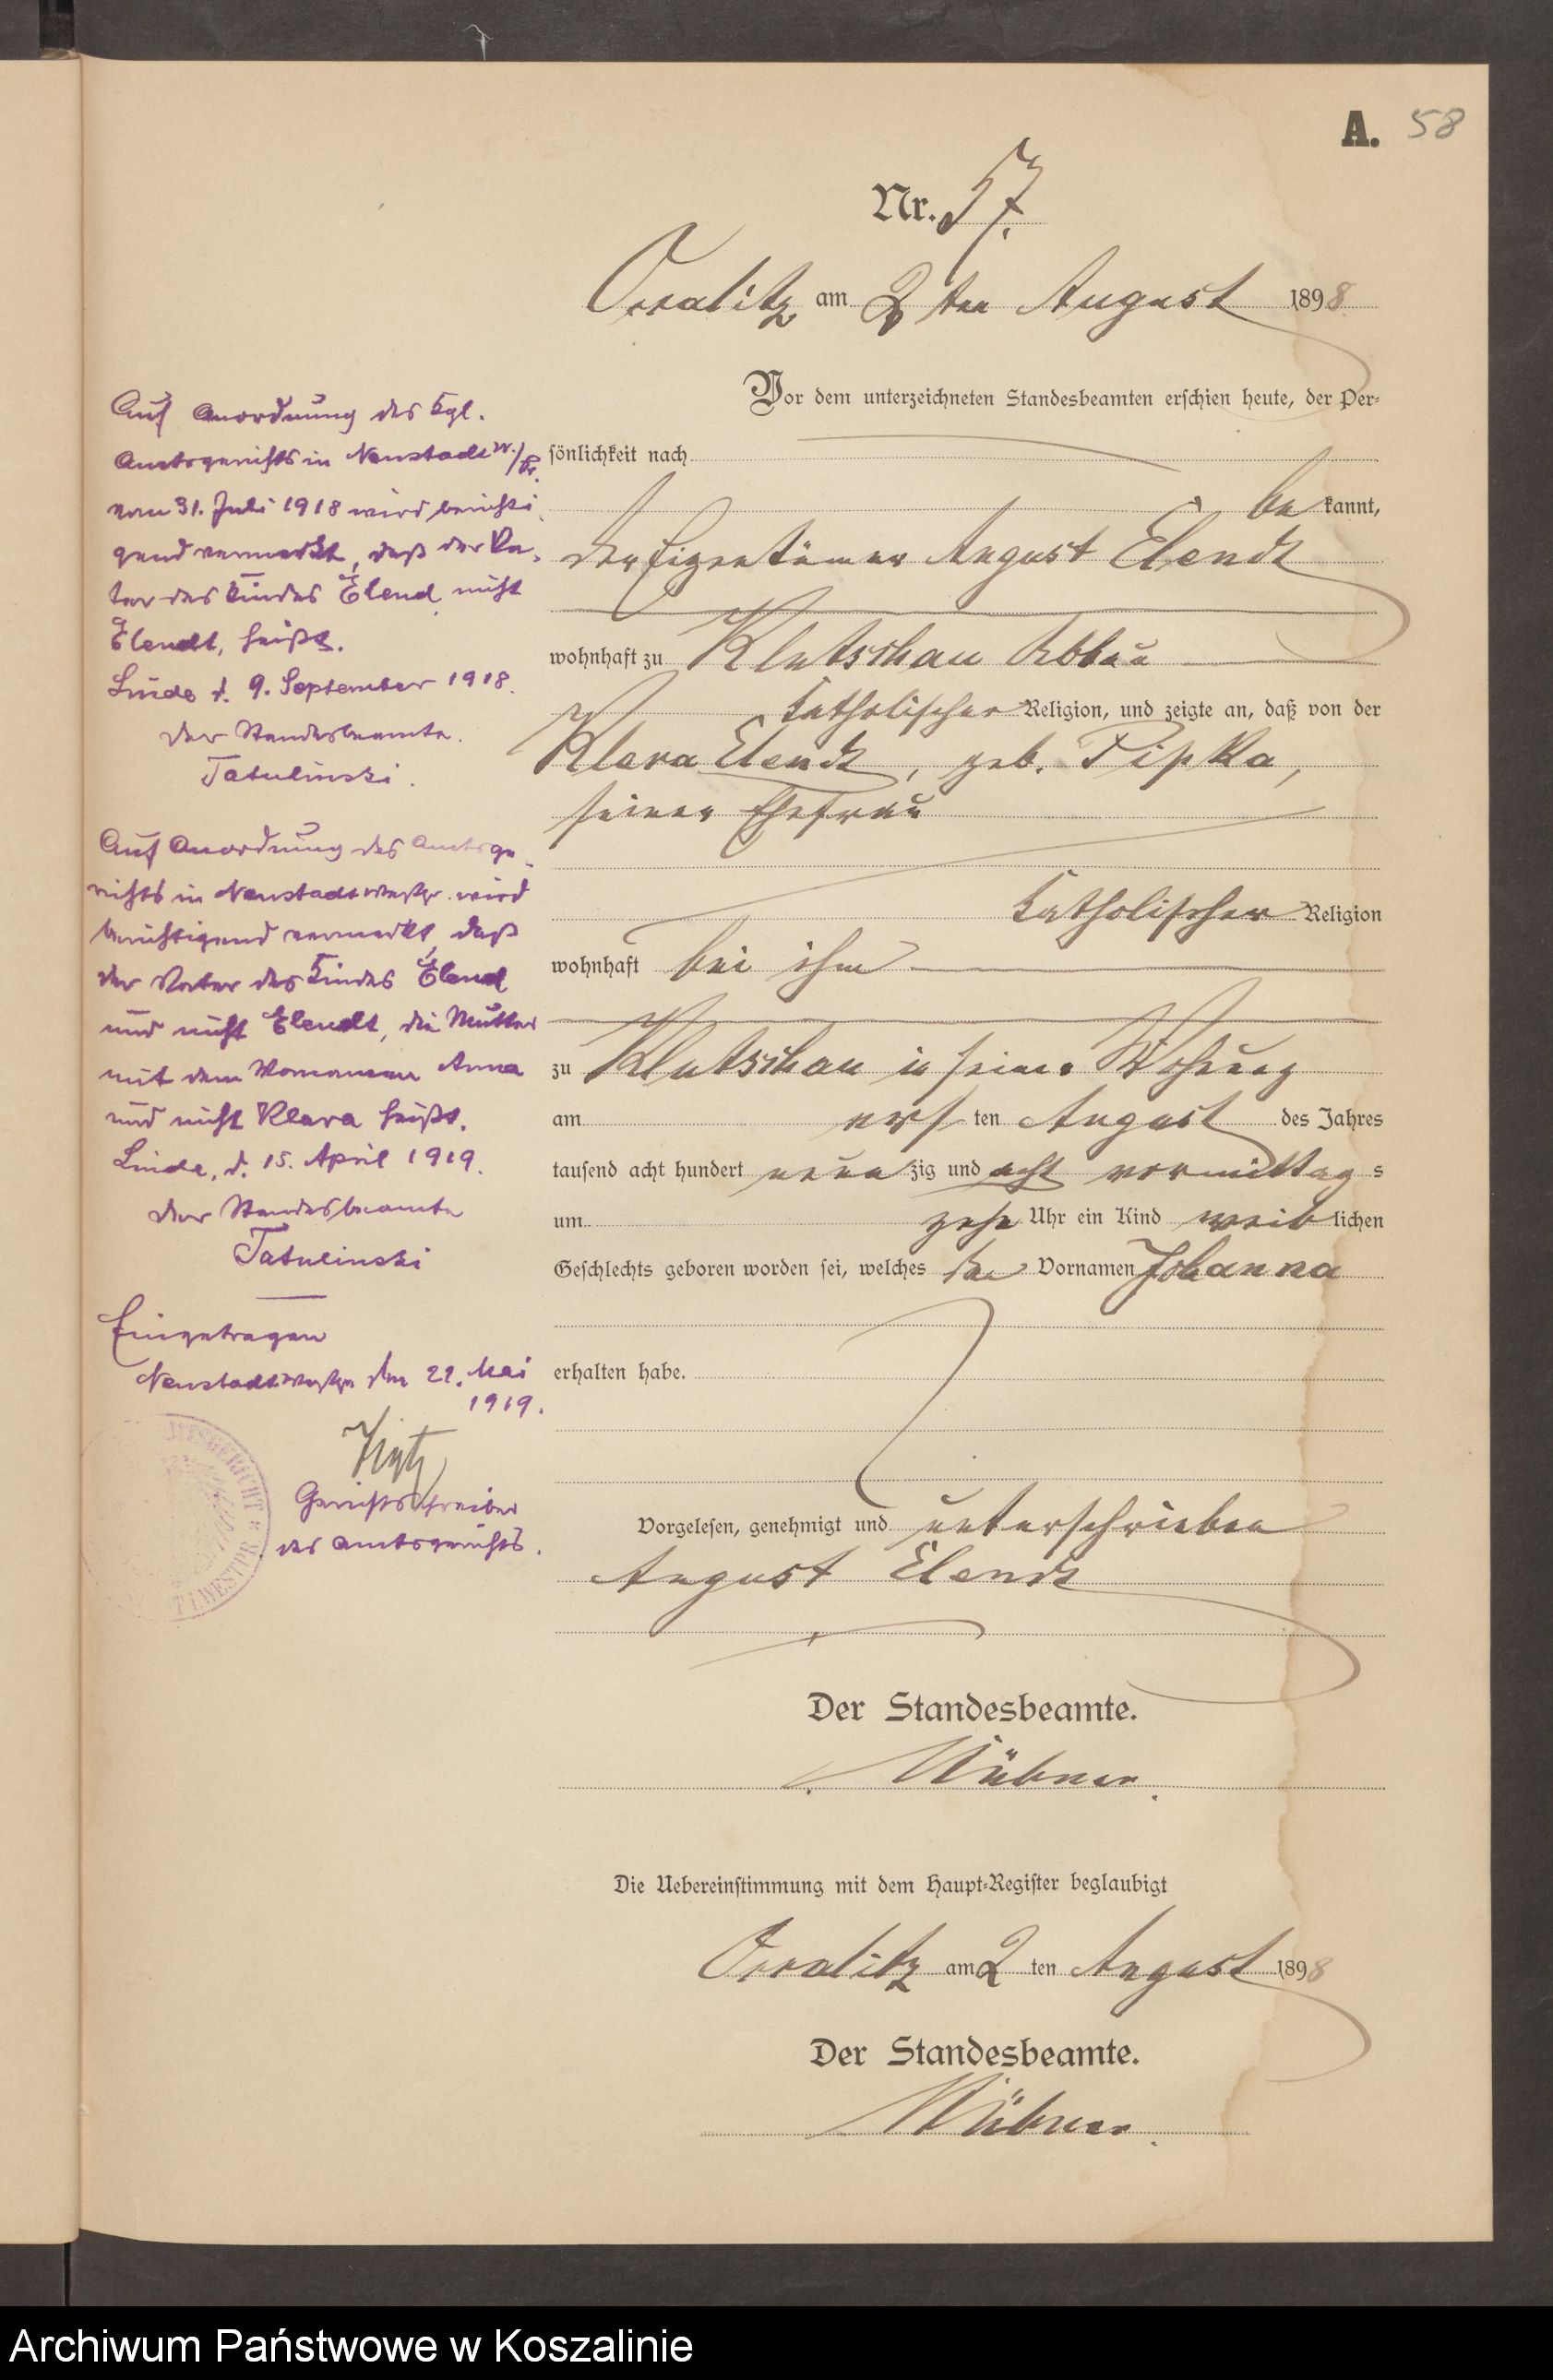 A. 58
Nr. 57.
Occalitz am 2 ten August 1898
Vor dem unterzeichneten Standesbeamten erschien heute, der Per-
sönlichkeit nach
be kannt,
der Eigentümer August Elendt
wohnhaft zu Klutschau Abbau
katholischer Religion, und zeigte an, daß von der
Klara Elendt, geb. Pipka,
seiner Ehefrau
katholischer Religion
wohnhaft bei ihm
zu Klutschau in seiner Wohnung
am ersten August des Jahres
tausend acht hundert neunzig und acht vormittags
um zehn Uhr ein Kind weiblichen
Geschlechts geboren worden sei, welches den Vornamen Johanna
erhalten habe.
Vorgelesen, genehmigt und unterschrieben
August Elendt
Der Standesbeamte.
Hübner.
Die Uebereinstimmung mit dem Haupt-Register beglaubigt
Occalitz am 2 ten August 1898
Der Standesbeamte.
Hübner.
Auf Anordnung des Kgl.
Amtsgerichts in Neustadt W./Pr.
vom 31. Juli 1918 wird berichti-
gend vermerkt, daß der Va-
ter des Kindes Elend nicht
Elendt, heißt.
Linde d. 9. September 1918.
Der Standesbeamte.
Tatulinski.
Auf Anordnung des Amtsge-
richts in Neustadt Westpr. wird
berichtigend vermerkt, daß
der Vater des Kindes Elend
und nicht Elendt, die Mutter
mit dem Vornamen Anna
und nicht Klara heißt.
Linde, d. 15. April 1919.
Der Standesbeamte
Tatulinski
Eingetragen
Neustadt Westpr. den 22. Mai
1919.
Gerichtsschreiber
des Amtsgerichts.
AMTSGERICHT * I.WESTPR
Archiwum Państwowe w Koszalinie